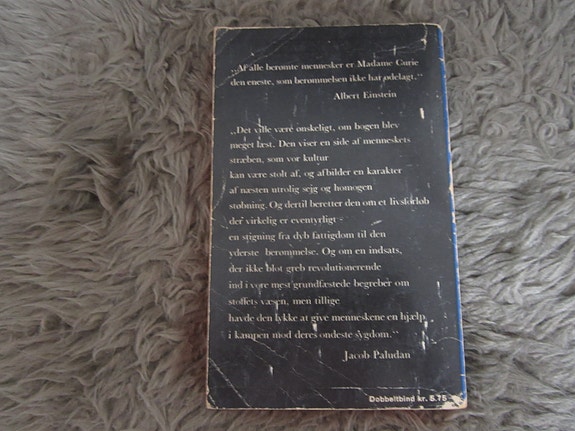 „Af alle berømte mennesker er Madame Curie
den eneste, som berømmelsen ikke har ødelagt."
Albert Einstein
„Det ville være ønskeligt, om bogen blev
meget læst. Den viser en side af menneskets
stræben, som vor kultur
kan være stolt af, og afbilder en karakter
af næsten utrolig sejg og homogen
støbning. Og dertil beretter den om et livsforløb
der virkelig er eventyrligt -
en stigning fra dyb fattigdom til den
yderste berømmelse. Og om en indsats,
der ikke blot greb revolutionerende
ind i vore mest grundfæstede begreber om
stoffets væsen, men tillige
havde den lykke at give menneskene en hjælp
i kampen mod deres ondeste sygdom."
Jacob Paludan
Dobbeltbind kr. 5.75